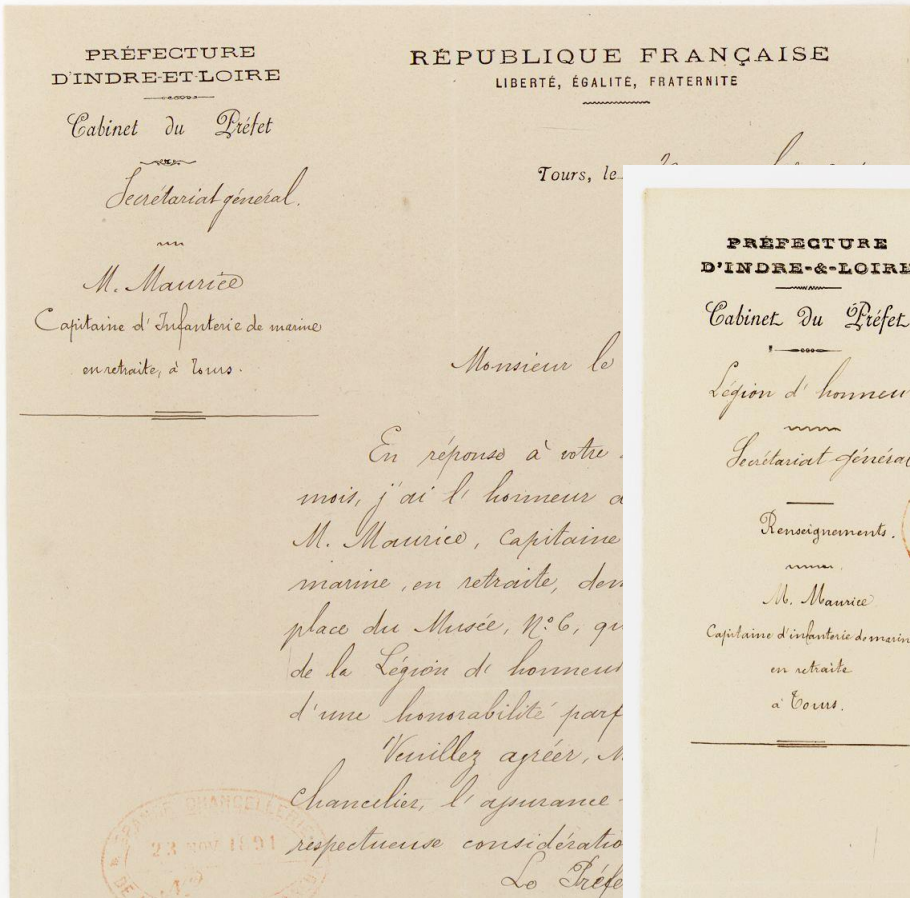 PRÉFECTURE
D'INDRE-ET-LOIRE
Cabinet du Préfet
Secrétariat général.
M. Maurice
Capitaine d'Infanterie de marine
en retraite, à Tours.
RÉPUBLIQUE FRANÇAISE
LIBERTÉ, ÉGALITÉ, FRATERNITE
Tours, le
Monsieur le
En réponse à votre
mois, j'ai l'honneur
M. Maurice, capitaine
marine, en retraite,
place du Musée, N° 6,
de la Légion d'honneur
d'une honorabilité
Veuillez agréer,
Chancelier, l'assurance
respectueuse
Le
GRANDE CHANCELLERIE
23 NOV 1891
PRÉFECTURE
D'INDRE-&-LOIRE
Cabinet du Préfet
Légion d'
Secrétariat
Renseignements.
M. Maurice
Capitaine d'infanterie de
en retraite
à Tours.